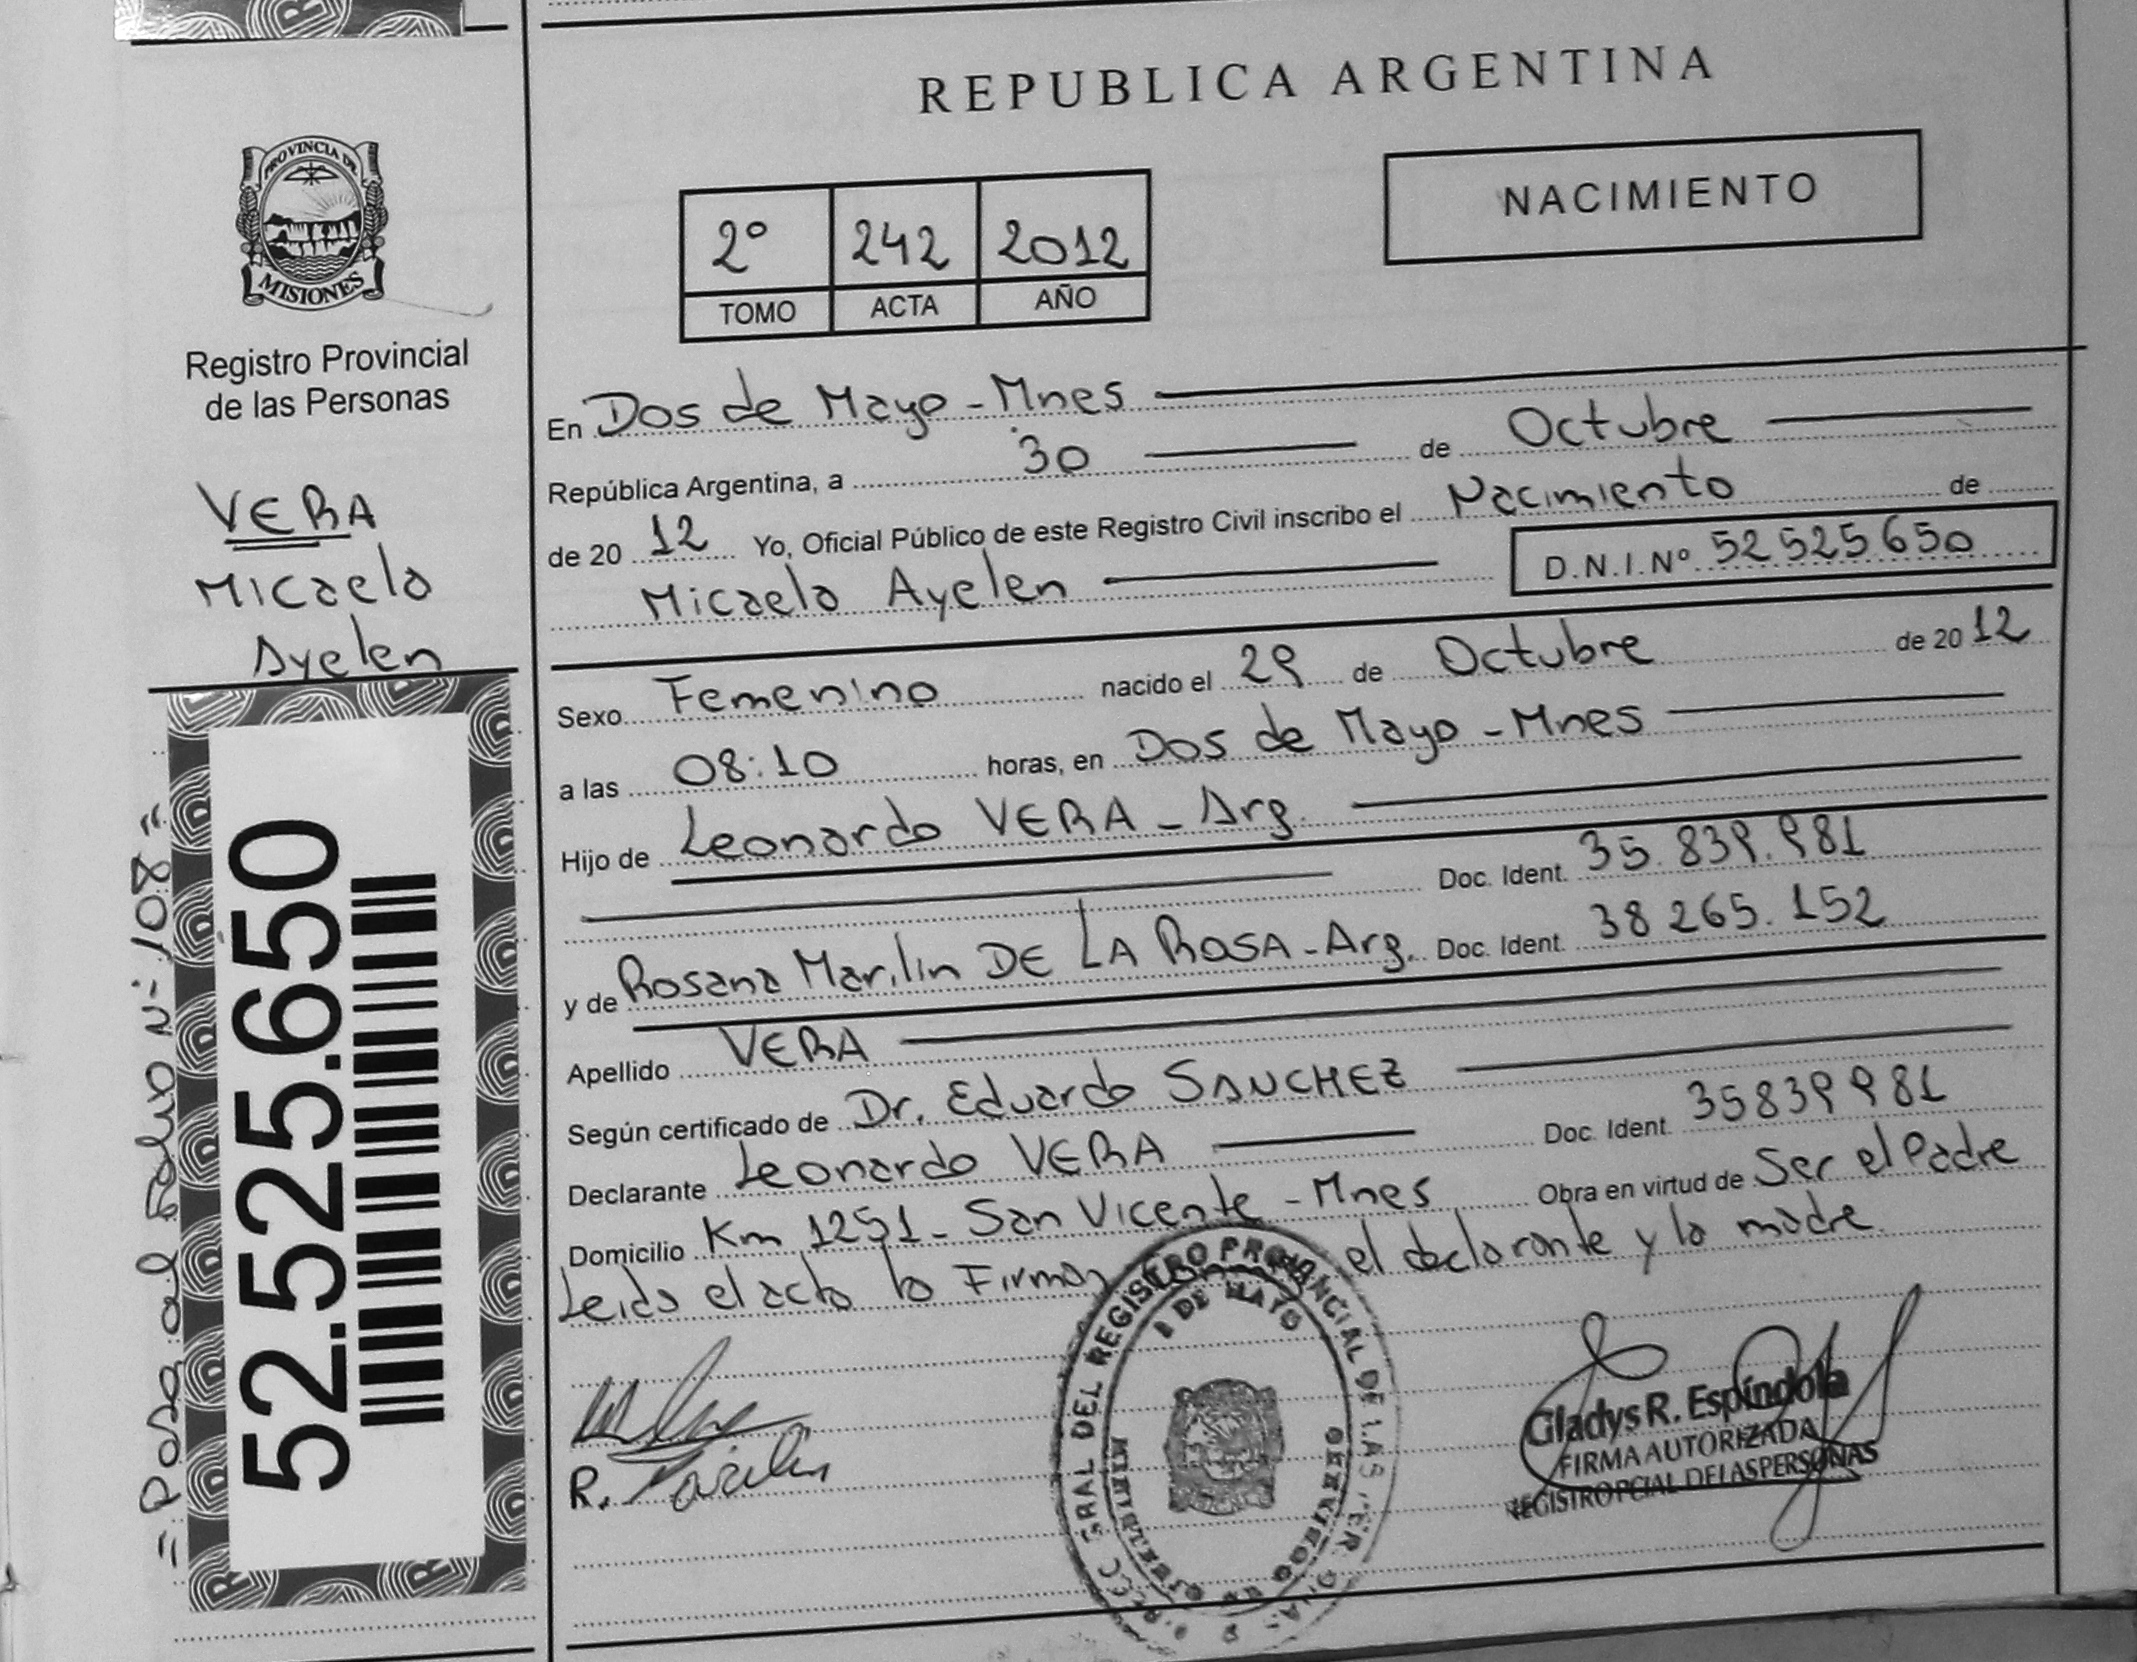 REPUBLICA ARGENTINA
NACIMIENTO
2° 242 2012
TOMO ACTA AÑO
PROVINCIA DE
MISIONES
Registro Provincial
de las Personas
VERA
Micaela
Ayelen
52.525.650
= Pasa al Folio N° 108 =
En Dos de Mayo - Mnes
República Argentina, a 30 de Octubre
de 20 12 Yo, Oficial Público de este Registro Civil inscribo el Nacimiento de
Micaela Ayelen D.N.I.Nº 52525650
Sexo Femenino nacido el 29 de Octubre de 20 12
a las 08:10 horas, en Dos de Mayo - Mnes
Hijo de Leonardo VERA - Arg.
Doc. Ident. 35.839.981
y de Rosana Marilin DE LA ROSA - Arg. Doc. Ident. 38 265.152
Apellido VERA
Según certificado de Dr. Eduardo SANCHEZ
Declarante Leonardo VERA Doc. Ident. 35839981
Domicilio Km 1251 - San Vicente - Mnes Obra en virtud de Ser el Padre
Leida el acta la Firman el declarante y la madre
R. Marilin
GRAL DEL REGISTRO PROVINCIAL DE LAS PER
DE MAYO
Gladys R. Espíndola
FIRMA AUTORIZADA
REGISTRO PCIAL DE LAS PERSONAS